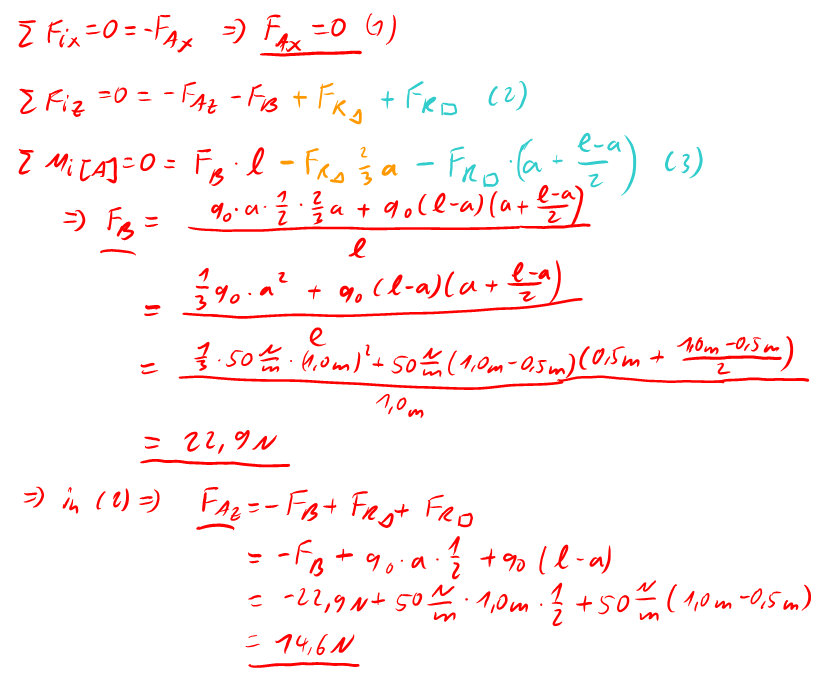 Σ F_ix = 0 = -F_Ax ⇒ F_Ax = 0 (1)
Σ F_iz = 0 = -F_Az - F_B + F_R△ + F_R□ (2)
Σ M_i[A] = 0 = F_B · l - F_R△ 2/3 a - F_R□ · (a + (l-a)/2) (3)
⇒ F_B = (q_0 · a · 1/2 · 2/3 a + q_0 (l-a)(a + (l-a)/2)) / l
= (1/3 q_0 · a² + q_0 (l-a)(a + (l-a)/2)) / l
= (1/3 · 50 N/m · (1,0m)² + 50 N/m (1,0m - 0,5m)(0,5m + (1,0m - 0,5m)/2)) / 1,0m
= 22,9 N
⇒ in (2) ⇒ F_Az = -F_B + F_R△ + F_R□
= -F_B + q_0 · a · 1/2 + q_0 (l-a)
= -22,9 N + 50 N/m · 1,0m · 1/2 + 50 N/m (1,0m - 0,5m)
= 14,6 N